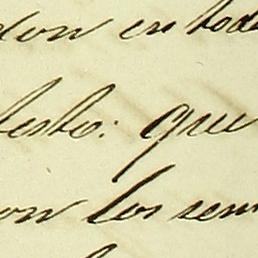 don en tod
lesto: que
on los sem